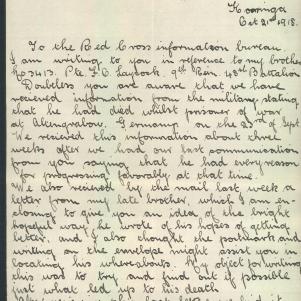 Kooringa
Oct 21st 1918.
To the Red Cross information bureau
I am writing to you in reference to my brother
No 3413. Pte. F. C. Laycock. 9th Rein. 48th Battalion
Doubtless you are aware that we have
received information from the military stating
that he had died whilst prisoner of war
at Altengrabow, Germany on the 23rd of Sept.
We received this information about three
weeks after we had our last communication
from you saying that he had every reason
for progressing favorably at that time.
We also received by the mail last week a
letter from my late brother, which I am en-
closing to give you an idea of the bright
hopeful way he wrote of his hopes of getting
better, and I also thought the postmark and
writing on the envelope might assist you in
locating his whereabouts. My object for writing
this was to try and find out if possible
just what led up to his death